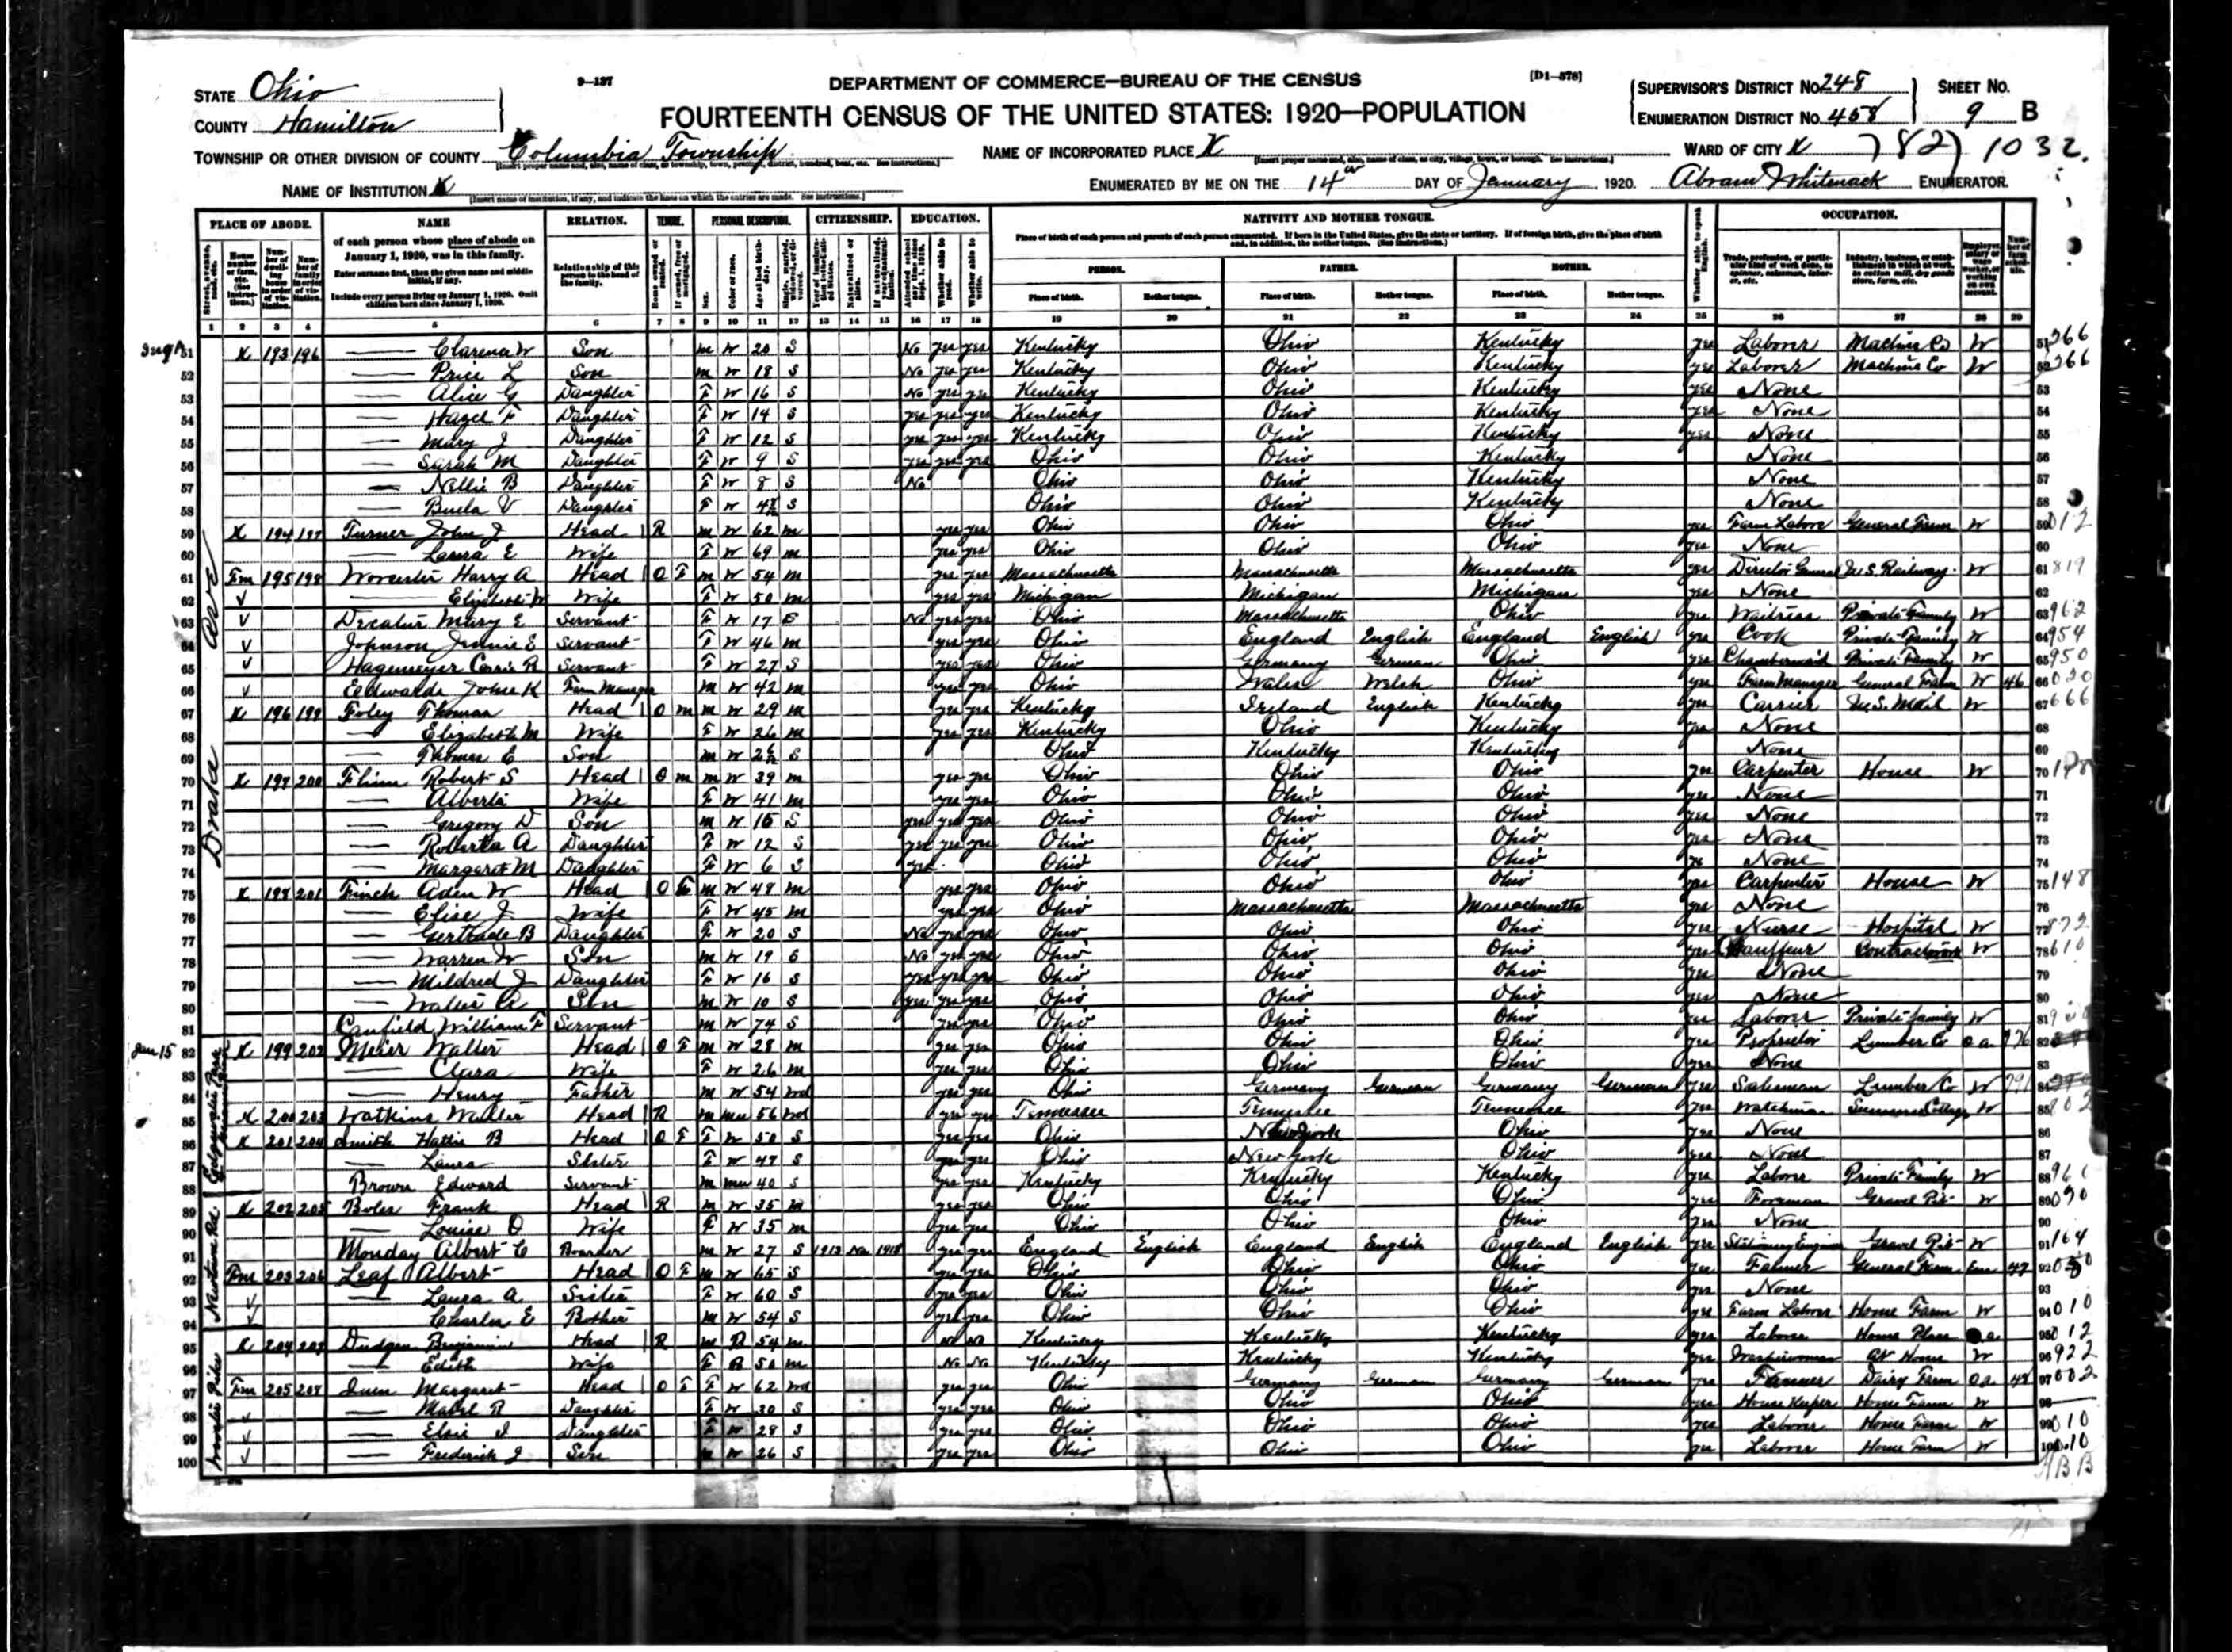 9-137 DEPARTMENT OF COMMERCE—BUREAU OF THE CENSUS [D1-578]
STATE Ohio
COUNTY Hamilton
FOURTEENTH CENSUS OF THE UNITED STATES: 1920—POPULATION
SUPERVISOR'S DISTRICT No. 248 SHEET NO.
ENUMERATION DISTRICT No. 458 9 B
TOWNSHIP OR OTHER DIVISION OF COUNTY Columbia Township NAME OF INCORPORATED PLACE X WARD OF CITY X 1032.
NAME OF INSTITUTION X ENUMERATED BY ME ON THE 14 DAY OF January, 1920. Abram Whitenack ENUMERATOR.
PLACE OF ABODE. NAME RELATION. TENURE. PERSONAL DESCRIPTION. CITIZENSHIP. EDUCATION. NATIVITY AND MOTHER TONGUE. OCCUPATION.
of each person whose place of abode on January 1, 1920, was in this family.
Enter surname first, then the given name and middle initial, if any.
Include every person living on January 1, 1920. Omit children born since January 1, 1920.
Relationship of this person to the head of the family.
Place of birth of each person and parents of each person enumerated. If born in the United States, give the state or territory. If of foreign birth, give the place of birth and, in addition, the mother tongue. (See instructions.)
PERSON. FATHER. MOTHER.
Place of birth. Mother tongue. Place of birth. Mother tongue. Place of birth. Mother tongue.
1 2 3 4 5 6 7 8 9 10 11 12 13 14 15 16 17 18 19 20 21 22 23 24 25 26 27 28 29
51 X 193 196 — Clarence W Son m W 20 S No yes yes Kentucky Ohio Kentucky yes Laborer Machine Co W 266
52 — Price L Son m W 18 S No yes yes Kentucky Ohio Kentucky yes Laborer Machine Co W 266
53 — Alice G Daughter F W 16 S No yes yes Kentucky Ohio Kentucky yes None
54 — Hazel F Daughter F W 14 S yes yes yes Kentucky Ohio Kentucky yes None
55 — Mary J Daughter F W 12 S yes yes yes Kentucky Ohio Kentucky yes None
56 — Sarah M Daughter F W 9 S yes yes yes Ohio Ohio Kentucky None
57 — Nellie B Daughter F W 8 S No Ohio Ohio Kentucky None
58 — Buela V Daughter F W S Ohio Ohio Kentucky None
59 X 194 197 Turner John J Head R m W 62 m yes yes Ohio Ohio Ohio yes Farm Labore General Farm W 012
60 — Laura E Wife F W 69 m yes yes Ohio Ohio Ohio yes None
61 Fm 195 198 Worcester Harry A Head O F m W 54 m yes yes Massachusetts Massachusetts Massachusetts yes Director General U.S. Railway W 819
62 — Elizabeth W Wife F W 50 m yes yes Michigan Michigan Michigan yes None
63 Decatur Mary E Servant F W 17 S No yes yes Ohio Massachusetts Ohio yes Waitress Private Family W 962
64 Johnson Jennie E Servant F W 46 m yes yes Ohio England English England English yes Cook Private Family W 954
65 Hagemeyer Carrie R Servant F W 27 S yes yes Ohio Germany German Ohio yes Chambermaid Private Family W 950
66 Eedwards John K Farm Manager m W 42 m yes yes Ohio Wales Welsh Ohio yes Farm Manager General Farm W 46 020
67 X 196 199 Foley Thomas Head O m m W 29 m yes yes Kentucky Ireland English Kentucky yes Carrier U.S. Mail W 666
68 — Elizabeth M Wife F W 26 m yes yes Kentucky Ohio Kentucky yes None
69 — Thomas E Son m W S Ohio Kentucky Kentucky None
70 X 197 200 Robert S Head O m m W 39 m yes yes Ohio Ohio Ohio yes Carpenter House W
71 — Alberta Wife F W 41 m yes yes Ohio Ohio Ohio yes None
72 — Gregory D Son m W 15 S yes yes yes Ohio Ohio Ohio yes None
73 — Roberta A Daughter F W 12 S yes yes yes Ohio Ohio Ohio yes None
74 — Margaret M Daughter F W 6 S yes Ohio Ohio Ohio None
75 X 198 201 Finch Aden W Head O m W 48 m yes yes Ohio Ohio Ohio yes Carpenter House W 148
76 — Elise J Wife F W 45 m yes yes Ohio Massachusetts Massachusetts yes None
77 — Gertrude B Daughter F W 20 S No yes yes Ohio Ohio Ohio yes Nurse Hospital W 872
78 — Warren W Son m W 19 S No yes yes Ohio Ohio Ohio yes Chauffeur W 610
79 — Mildred J Daughter F W 16 S yes yes yes Ohio Ohio Ohio yes None
80 — Walter A Son m W 10 S yes yes yes Ohio Ohio Ohio yes None
81 Canfield William F Servant m W 74 S yes yes Ohio Ohio Ohio yes Laborer Private family W
Jan 15 82 X 199 202 Meier Walter Head O F m W 28 m yes yes Ohio Ohio Ohio yes Proprietor Lumber Co O a
83 — Clara Wife F W 26 m yes yes Ohio Ohio Ohio yes None
84 — Henry Father m W 54 wd yes yes Ohio Germany German Germany German yes Salesman Lumber Co W
85 X 200 203 Watkins Walter Head R m mu 56 wd yes yes Tennessee Tennessee Tennessee yes Watchman W 902
86 X 201 204 Smith Hattie B Head O F F W 50 S yes yes Ohio New York Ohio yes None
87 — Laura Sister F W 47 S yes yes Ohio New York Ohio yes None
88 Brown Edward Servant m mu 40 S yes yes Kentucky Kentucky Kentucky yes Labore Private Family W
89 X 202 205 Boler Frank Head R m W 35 m yes yes Ohio Ohio Ohio yes Foreman Gravel Pit W 090
90 — Louise O Wife F W 35 m yes yes Ohio Ohio Ohio yes None
91 Monday Albert C Boarder m W 27 S 1913 Na 1918 yes yes England English England English England English yes Stationary Engineer Gravel Pit W 164
92 Fm 203 206 Leaf Albert Head O F m W 65 S yes yes Ohio Ohio Ohio yes Farmer General Farm Em 47
93 — Laura A Sister F W 60 S yes yes Ohio Ohio Ohio yes None
94 — Charles E Bother m W 54 S yes yes Ohio Ohio Ohio yes Farm Laborer Home Farm W 010
95 X 204 207 Dudgen Benjamin Head R m B 54 m No No Kentucky Kentucky Kentucky yes Laborer Home Place 012
96 — Edith Wife F B 50 m No No Kentucky Kentucky Kentucky yes Washerwoman At Home W 922
97 Fm 205 208 Margaret Head O F F W 62 wd yes yes Ohio Germany German Germany German yes Farmer Dairy Farm O a 48 002
98 — Mabel R Daughter F W 30 S yes yes Ohio Ohio Ohio yes House Keeper Home Farm W
99 — Elsie I Daughter F W 28 S yes yes Ohio Ohio Ohio yes Laborer Home Farm W 010
100 — Frederick J Son m W 26 S yes yes Ohio Ohio Ohio yes Laborer Home Farm W 010
Drake Ave
KODAK SAFETY